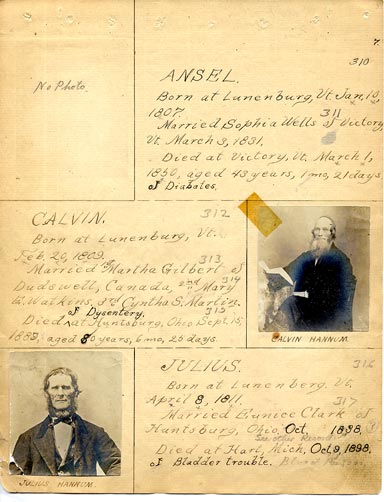 7.
310
No Photo.
ANSEL.
Born at Lunenburg, Vt. Jan. 10,
1807. 311
Married Sophia Wells of Victory
Vt. March 3, 1831.
Died at Victory, Vt. March 1,
1850, aged 43 years, 1 mo, 21 days
of Diabates.
CALVIN. 312
Born at Lunenburg, Vt.
Feb. 20, 1809. 313
Married Martha Gilbert of
Dudswell, Canada, 2nd Mary 314
Watkins, 3rd Cyntha S. Martin.
of Dysentery. 315
Died at Huntsburg, Ohio Sept. 15,
1889, aged 80 years, 6 mo, 25 days.
CALVIN HANNUM.
JULIUS. 316
Born at Lunenberg, Vt.
April 8, 1811. 317
Married Eunice Clark of
Huntsburg, Ohio, Oct. 1838.
See other Record
Died at Hart, Mich, Oct. 9, 1898.
of Bladder trouble. Blood Poison
JULIUS HANNUM.